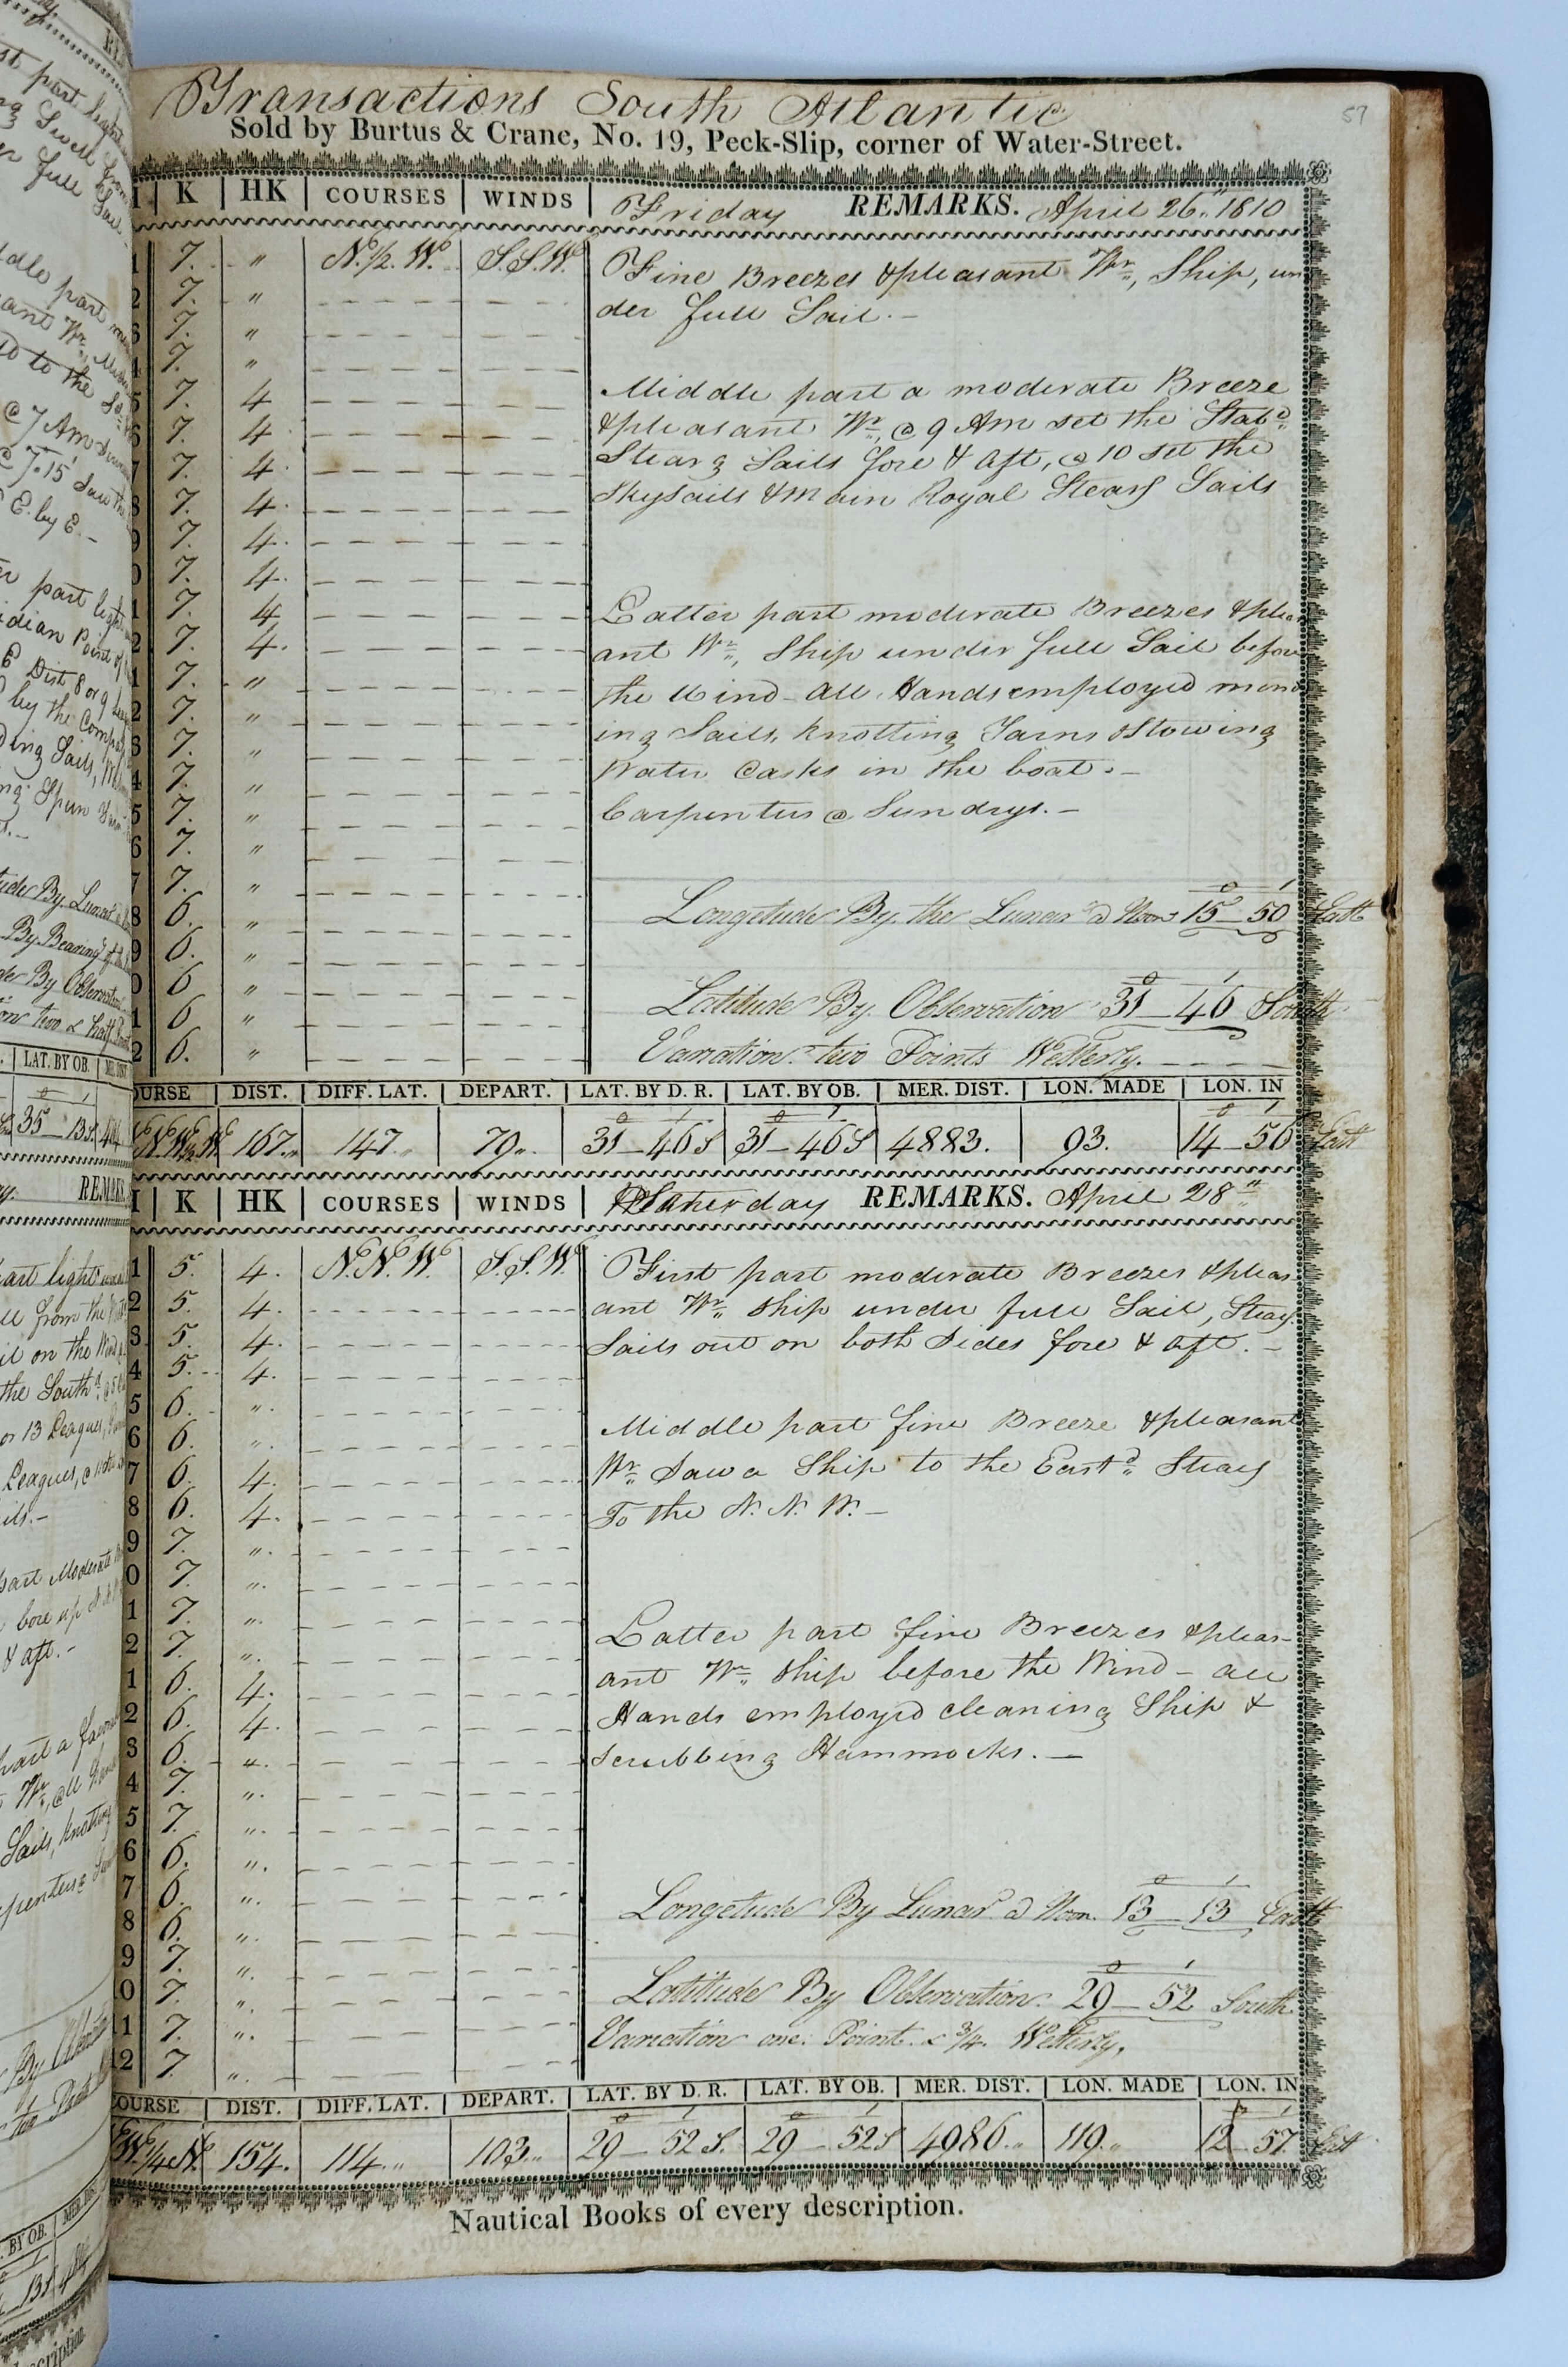 Transactions South Atlantic
57
Sold by Burtus & Crane, No. 19, Peck-Slip, corner of Water-Street.
K HK COURSES WINDS Friday REMARKS. April 26" 1810
1 7. " N. 1/2. W. S.S.W. Fine Breezes & pleasant Wr, Ship, un
2 7. " der full Sail.-
3 7. "
4 7. "
5 7. 4 Middle part a moderate Breeze
6 7. 4 & pleasant Wr, @ 9 Am set the Stabd
7 7. 4 Stearg Sails fore & aft, @ 10 set the
8 7. 4. Skysails & main Royal Stearg Sails
9 7. 4.
0 7. 4.
1 7. 4 Latter part moderate Breezes & pleas
2 7. 4. ant Wr, Ship under full Sail before
1 7. " the Wind - all Hands employed mend
2 7. " ing Sails, knotting Yarns & Stowing
3 7. " Water Casks in the boat.-
4 7. "
5 7. " Carpenters @ Sundrys.-
6 7. "
7 7. "
8 6. " Longetude By the Lunar @ Noon 15° 50' East
9 6. "
0 6 "
1 6 " Latitude By Observation 31° 46' South
2 6. " Variation two Points Westerly.
COURSE DIST. DIFF. LAT. DEPART. LAT. BY D. R. LAT. BY OB. MER. DIST. LON. MADE LON. IN
167. 147. 79. 31-46 S 31-46 S 4883. 93. 14-56 East
K HK COURSES WINDS Saturday REMARKS. April 28"
1 5. 4. N.N.W. S.S.W. First part moderate Breezes & pleas
2 5. 4. ant Wr Ship under full Sail, Stearg
3 5. 4. Sails out on both Sides fore & aft.-
4 5. 4.
5 6. "
6 6. " Middle part fine Breeze & pleasant
7 6. 4. Wr Saw a Ship to the Eastd Stearg
8 6. 4. To the N. N. W.-
9 7. "
0 7. "
1 7. "
2 7. " Latter part fine Breezes & pleas-
1 6. 4. ant Wr Ship before the Wind - all
2 6. 4. Hands employed cleaning Ship &
3 6. " Scrubbing Hammocks.-
4 7. "
5 7. "
6 6. "
7 6. "
8 6. " Longetude By Lunar @ Noon. 13° 13' East
9 7. "
0 7. " Latitude By Observation. 29° 52' South
11 7. " Variation one Point & 3/4. Westerly.
12 7. "
COURSE DIST. DIFF. LAT. DEPART. LAT. BY D. R. LAT. BY OB. MER. DIST. LON. MADE LON. IN
154. 114. 103. 29-52 S. 29-52 S 4986. 119. 12-57 East
Nautical Books of every description.